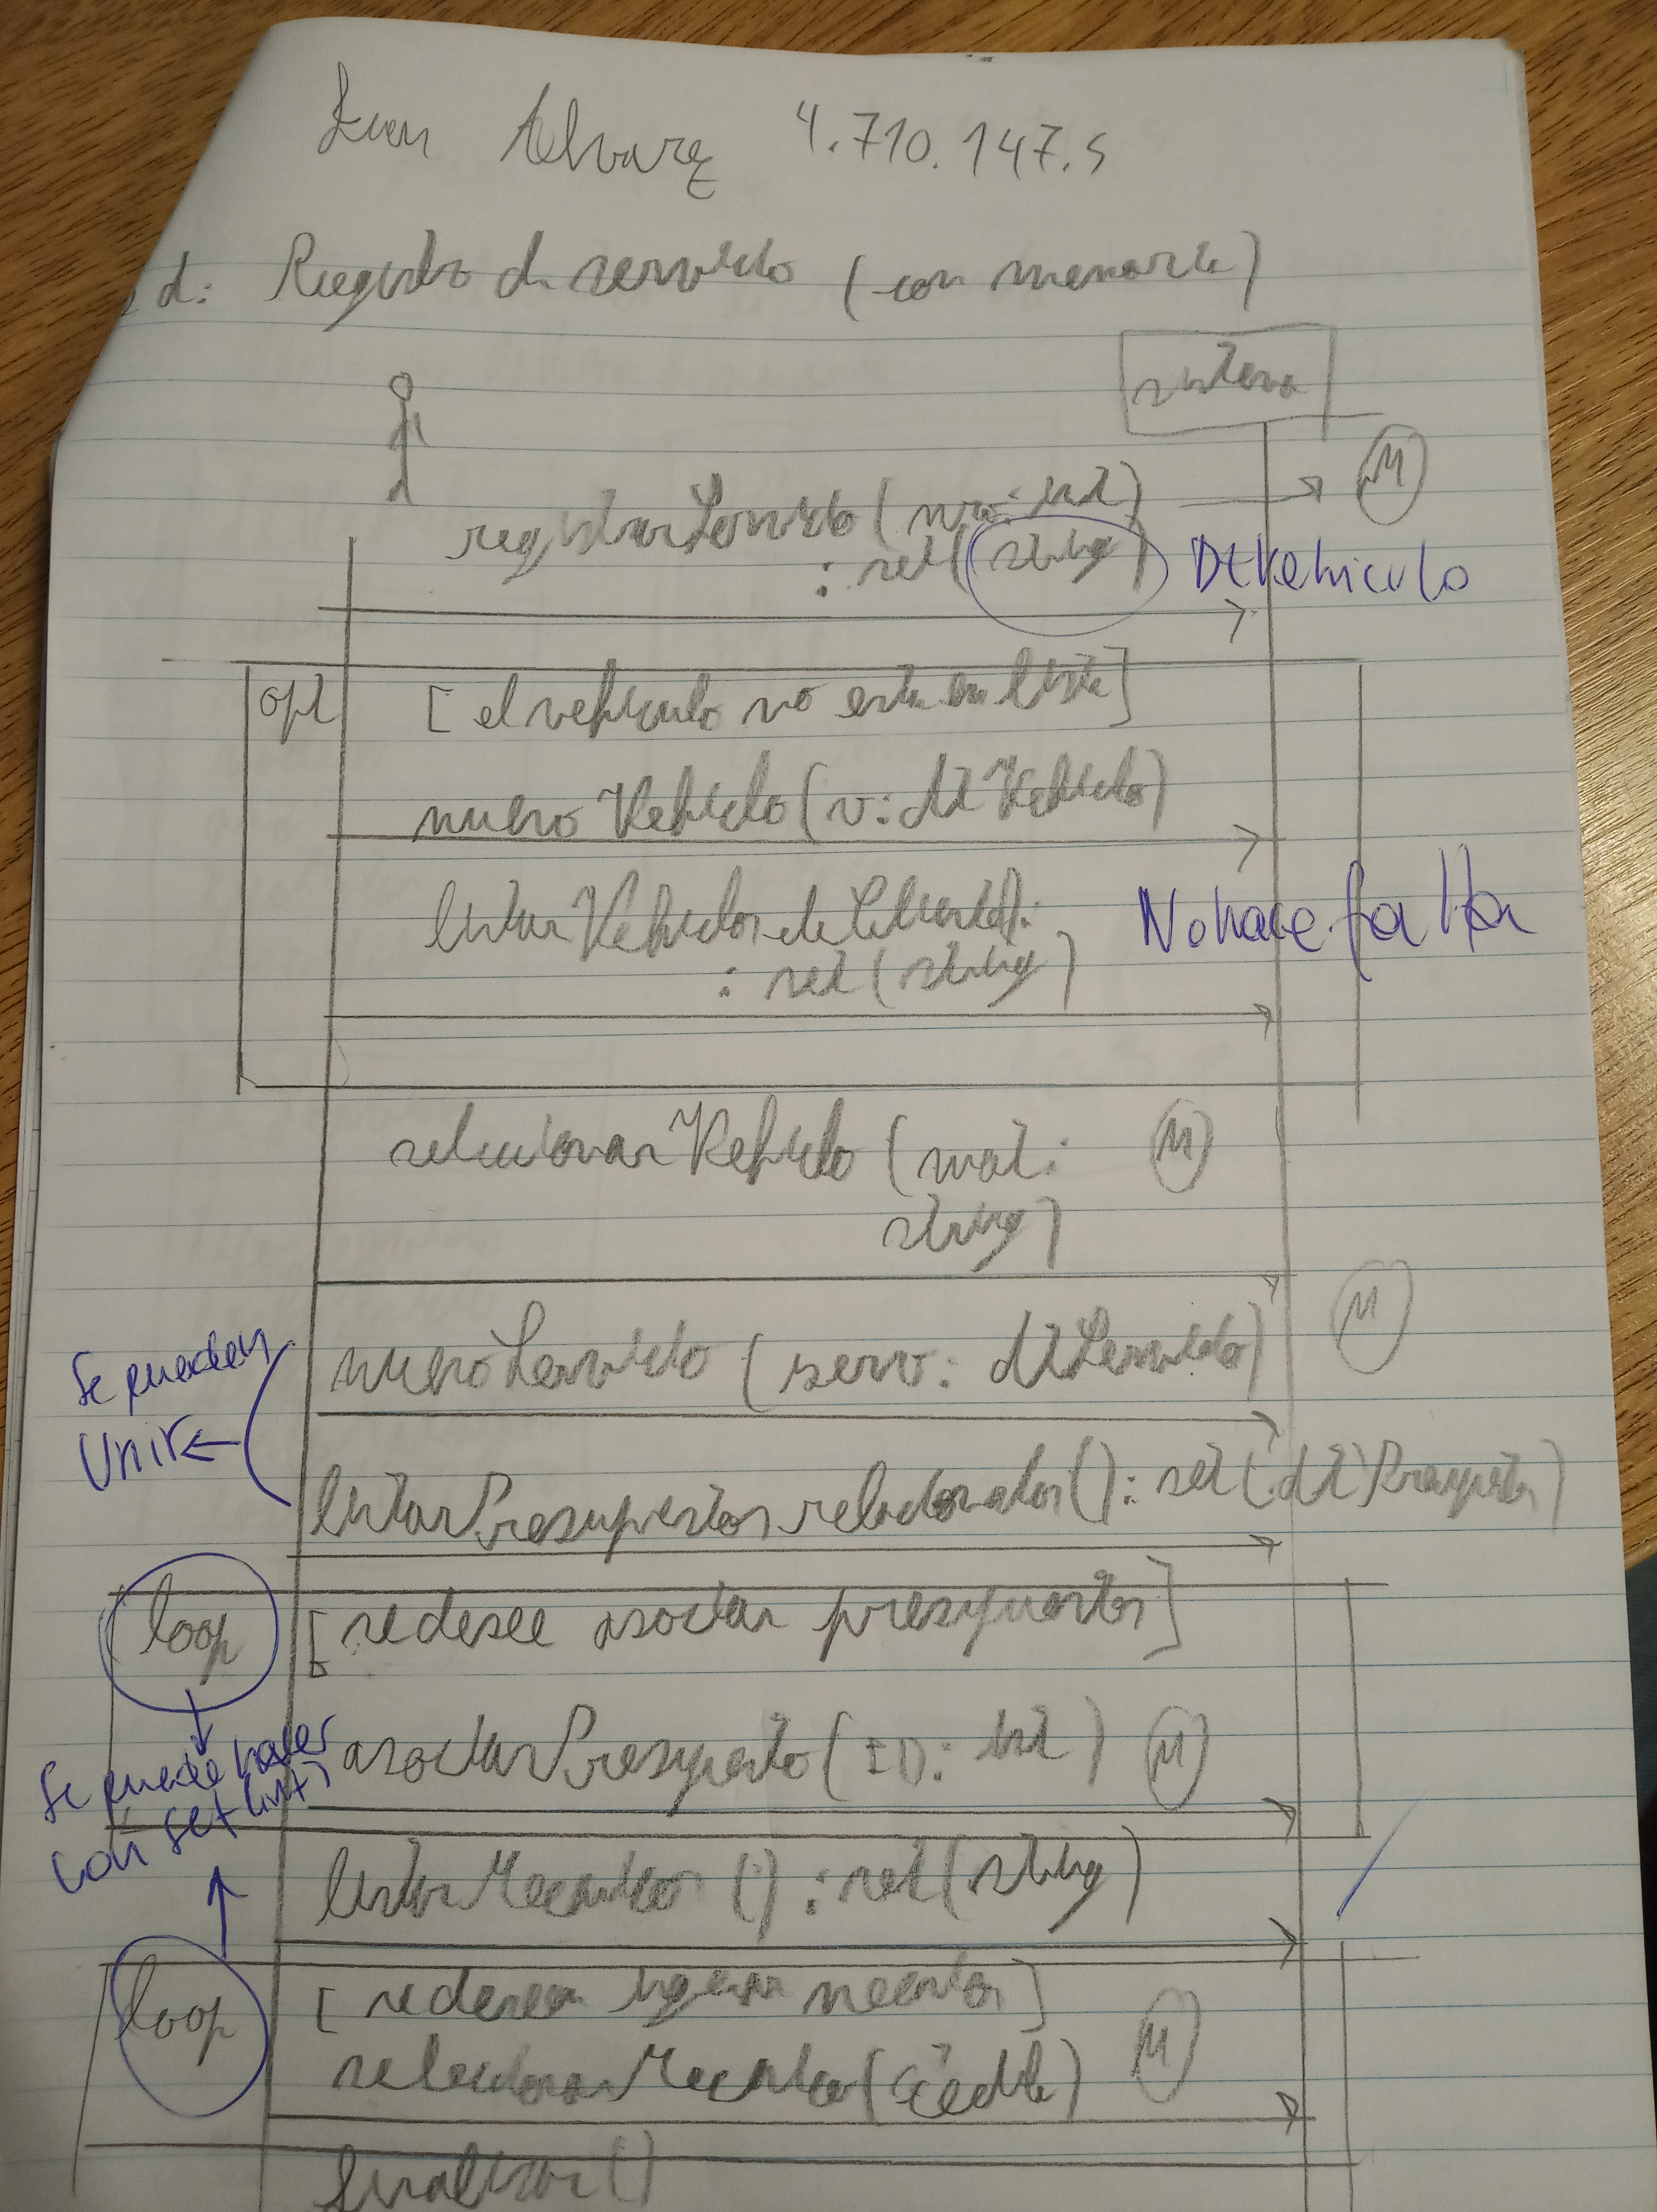 Juan Alvarez 4.710.147.5
d: Registro de servicio (con memoria)
sistema
M
registrarServicio(nro: int)
: set(string)
DtVehiculo
opt
[el vehiculo no esta en lista]
nuevoVehiculo(v: dtVehiculo)
listarVehiculosdeCliente():
: set(string)
No hace falta
seleccionarVehiculo (mat:
string)
M
M
nuevoServicio (serv: dtServicio)
Se pueden
Unir
listarPresupuestosrelacionados(): set(dtPresupuesto)
loop
[se desee asociar presupuestos]
asociarPresupuesto(ID: int)
M
Se puede hacer
con set(int)
listarMecanicos(): set(string)
loop
[se desean ingresar mecanicos]
seleccionarMecanico(cedula)
M
finalizar()